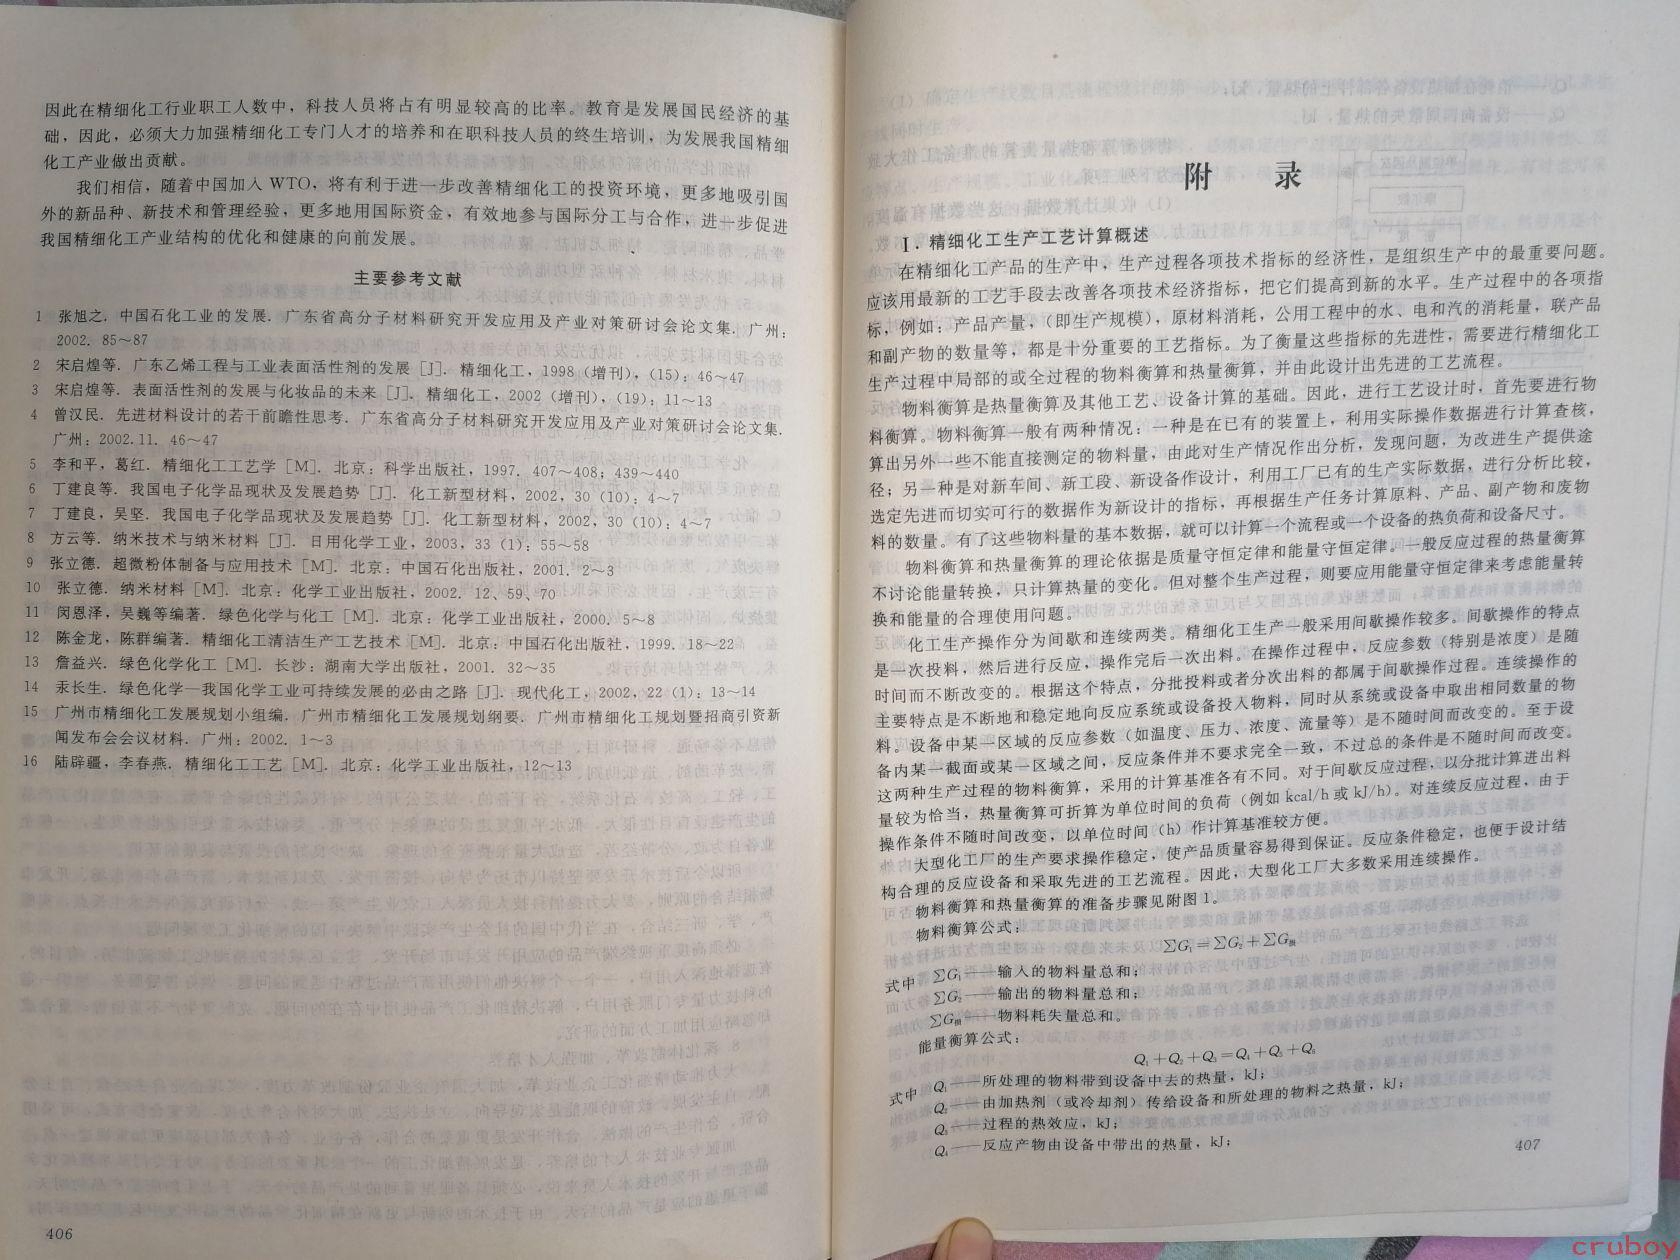 因此在精细化工行业职工人数中，科技人员将占有明显较高的比率。教育是发展国民经济的基
础，因此，必须大力加强精细化工专门人才的培养和在职科技人员的终生培训，为发展我国精细
化工产业做出贡献。
我们相信，随着中国加入 WTO，将有利于进一步改善精细化工的投资环境，更多地吸引国
外的新品种、新技术和管理经验，更多地用国际资金，有效地参与国际分工与合作，进一步促进
我国精细化工产业结构的优化和健康的向前发展。
主要参考文献
1 张旭之．中国石化工业的发展．广东省高分子材料研究开发应用及产业对策研讨会论文集．广州：
2002. 85～87
2 宋启煌等．广东乙烯工程与工业表面活性剂的发展［J］．精细化工，1998（增刊），（15）：46～47
3 宋启煌等．表面活性剂的发展与化妆品的未来［J］．精细化工，2002（增刊），（19）：11～13
4 曾汉民．先进材料设计的若干前瞻性思考．广东省高分子材料研究开发应用及产业对策研讨会论文集．
广州：2002.11. 46～47
5 李和平，葛红．精细化工工艺学［M］．北京：科学出版社，1997. 407～408；439～440
6 丁建良等．我国电子化学品现状及发展趋势［J］．化工新型材料，2002，30（10）：4～7
7 丁建良，吴坚．我国电子化学品现状及发展趋势［J］．化工新型材料，2002，30（10）：4～7
8 方云等．纳米技术与纳米材料［J］．日用化学工业，2003，33（1）：55～58
9 张立德．超微粉体制备与应用技术［M］．北京：中国石化出版社，2001. 2～3
10 张立德．纳米材料［M］．北京：化学工业出版社，2002. 12、59、70
11 闵恩泽，吴巍等编著．绿色化学与化工［M］．北京：化学工业出版社，2000. 5～8
12 陈金龙，陈群编著．精细化工清洁生产工艺技术［M］．北京：中国石化出版社，1999. 18～22
13 詹益兴．绿色化学化工［M］．长沙：湖南大学出版社，2001. 32～35
14 汞长生．绿色化学—我国化学工业可持续发展的必由之路［J］．现代化工，2002，22（1）：13～14
15 广州市精细化工发展规划小组编．广州市精细化工发展规划纲要．广州市精细化工规划暨招商引资新
闻发布会会议材料．广州：2002. 1～3
16 陆辟疆，李春燕．精细化工工艺［M］．北京：化学工业出版社，12～13
406
附 录
Ⅰ．精细化工生产工艺计算概述
在精细化工产品的生产中，生产过程各项技术指标的经济性，是组织生产中的最重要问题。
应该用最新的工艺手段去改善各项技术经济指标，把它们提高到新的水平。生产过程中的各项指
标，例如：产品产量，（即生产规模），原材料消耗，公用工程中的水、电和汽的消耗量，联产品
和副产物的数量等，都是十分重要的工艺指标。为了衡量这些指标的先进性，需要进行精细化工
生产过程中局部的或全过程的物料衡算和热量衡算，并由此设计出先进的工艺流程。
物料衡算是热量衡算及其他工艺、设备计算的基础。因此，进行工艺设计时，首先要进行物
料衡算。物料衡算一般有两种情况：一种是在已有的装置上，利用实际操作数据进行计算查核，
算出另外一些不能直接测定的物料量，由此对生产情况作出分析，发现问题，为改进生产提供途
径；另一种是对新车间、新工段、新设备作设计，利用工厂已有的生产实际数据，进行分析比较，
选定先进而切实可行的数据作为新设计的指标，再根据生产任务计算原料、产品、副产物和废物
料的数量。有了这些物料量的基本数据，就可以计算一个流程或一个设备的热负荷和设备尺寸。
物料衡算和热量衡算的理论依据是质量守恒定律和能量守恒定律。一般反应过程的热量衡算
不讨论能量转换，只计算热量的变化。但对整个生产过程，则要应用能量守恒定律来考虑能量转
换和能量的合理使用问题。
化工生产操作分为间歇和连续两类。精细化工生产一般采用间歇操作较多。间歇操作的特点
是一次投料，然后进行反应，操作完后一次出料。在操作过程中，反应参数（特别是浓度）是随
时间而不断改变的。根据这个特点，分批投料或者分次出料的都属于间歇操作过程。连续操作的
主要特点是不断地和稳定地向反应系统或设备投入物料，同时从系统或设备中取出相同数量的物
料。设备中某一区域的反应参数（如温度、压力、浓度、流量等）是不随时间而改变的。至于设
备内某一截面或某一区域之间，反应条件并不要求完全一致，不过总的条件是不随时间而改变。
这两种生产过程的物料衡算，采用的计算基准各有不同。对于间歇反应过程，以分批计算进出料
量较为恰当，热量衡算可折算为单位时间的负荷（例如 kcal/h 或 kJ/h）。对连续反应过程，由于
操作条件不随时间改变，以单位时间（h）作计算基准较方便。
大型化工厂的生产要求操作稳定，使产品质量容易得到保证。反应条件稳定，也便于设计结
构合理的反应设备和采取先进的工艺流程。因此，大型化工厂大多数采用连续操作。
物料衡算和热量衡算的准备步骤见附图 1。
物料衡算公式：
∑G₁＝∑G₂＋∑G损
式中 ∑G₁——输入的物料量总和；
∑G₂——输出的物料量总和；
∑G损——物料耗失量总和。
能量衡算公式：
Q₁＋Q₂＋Q₃＝Q₄＋Q₅＋Q₆
式中 Q₁——所处理的物料带到设备中去的热量，kJ；
Q₂——由加热剂（或冷却剂）传给设备和所处理的物料之热量，kJ；
Q₃——过程的热效应，kJ；
Q₄——反应产物由设备中带出的热量，kJ；
407
cruboy